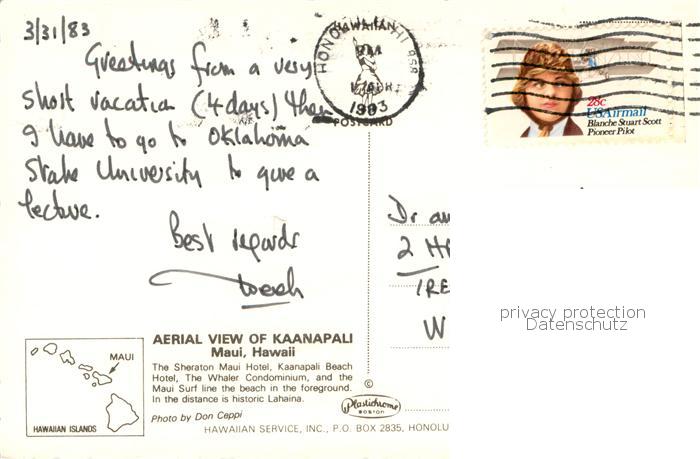 3/31/83
Greetings from a very
short vacation (4 days) then
I have to go to Oklahoma
State University to give a
lecture.
Best regards
HONOLULU HI 968
HAWAIIAN
PM
1 APR
1983
POSTCARD
28c
USAirmail
Blanche Stuart Scott
Pioneer Pilot
Dr an
2
IRE
W
privacy protection
Datenschutz
MAUI
HAWAIIAN ISLANDS
AERIAL VIEW OF KAANAPALI
Maui, Hawaii
The Sheraton Maui Hotel, Kaanapali Beach
Hotel, The Whaler Condominium, and the
Maui Surf line the beach in the foreground.
In the distance is historic Lahaina.
Photo by Don Ceppi
©
Plastichrome
BOSTON
HAWAIIAN SERVICE, INC., P.O. BOX 2835, HONOLU